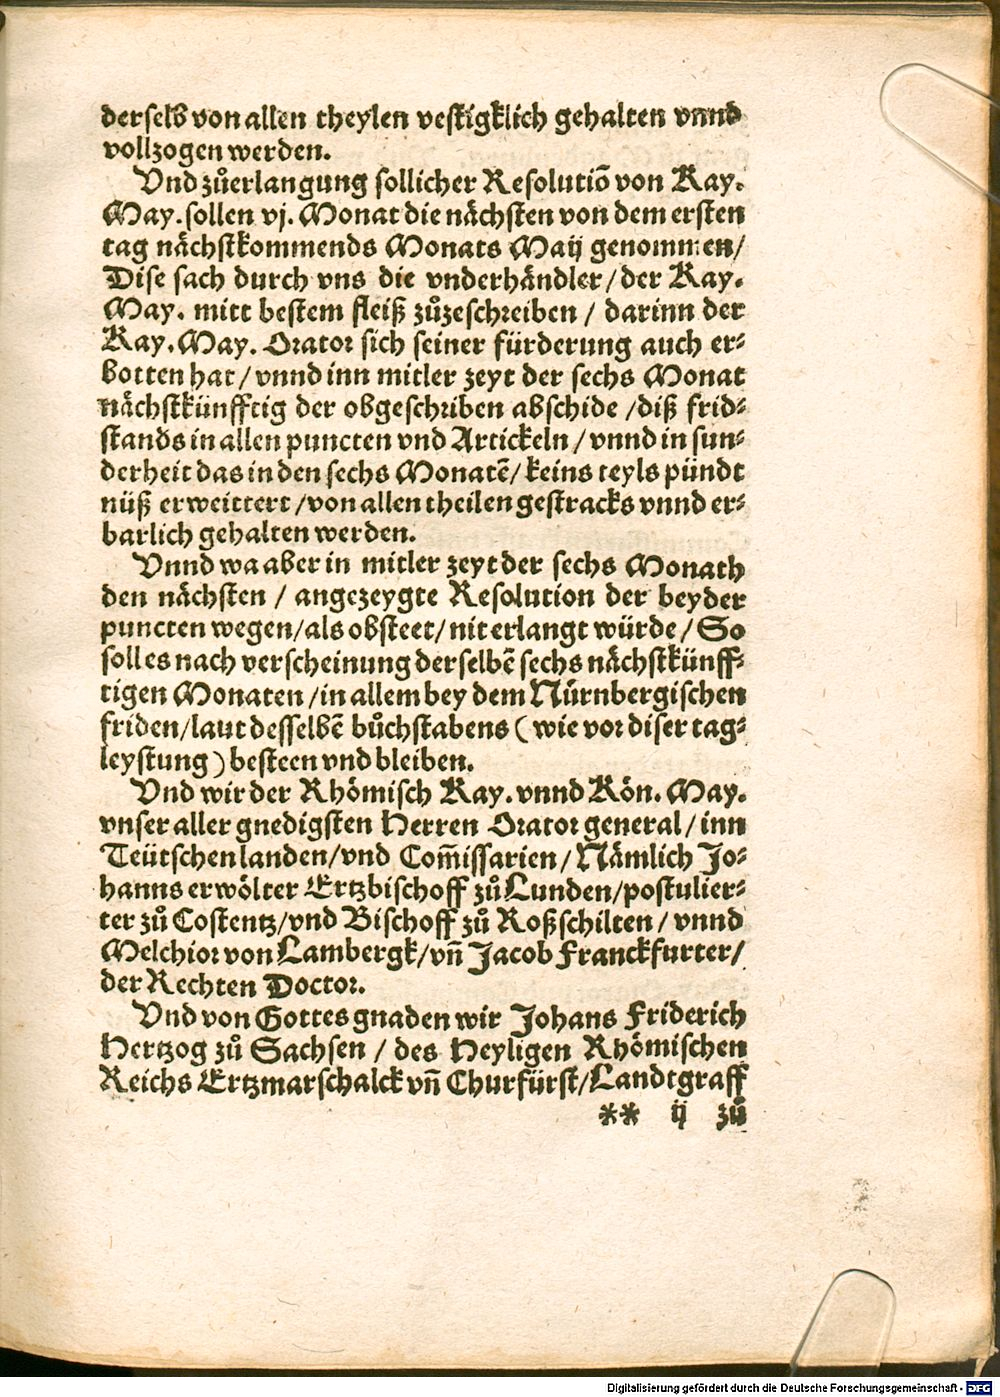 derselb von allen theylen vestigklich gehalten vnnd
vollzogen werden.
Vnd zůerlangung sollicher Resolutiõ von Kay.
May. sollen vj. Monat die nächsten von dem ersten
tag nächstkommends Monats Maij genommen/
Dise sach durch vns die vnderhändler/der Kay.
May. mitt bestem fleiß zůzeschreiben / darinn der
Kay. May. Orator sich seiner fürderung auch er⸗
botten hat / vnnd inn mitler zeyt der sechs Monat
nächstkünfftig der obgeschriben abschide /diß frid⸗
stands in allen puncten vnd Artickeln / vnnd in sun⸗
derheit das in den sechs Monatẽ/ keins teyls pündt
nüß erweittert /von allen theilen gestracks vnnd er⸗
barlich gehalten werden.
Vnnd wa aber in mitler zeyt der sechs Monath
den nächsten / angezeygte Resolution der beyder
puncten wegen/als obsteet/ nit erlangt würde/ So
soll es nach verscheinung derselbẽ sechs nächstkünff⸗
tigen Monaten /in allem bey dem Nürnbergischen
friden/laut desselbẽ bůchstabens ( wie vor diser tag⸗
leystung ) besteen vnd bleiben.
Vnd wir der Rhömisch Kay. vnnd Kön. May.
vnser aller gnedigsten Herren Orator general/ inn
Teütschen landen/vnd Com̃issarien/ Nämlich Jo⸗
hanns erwölter Ertzbischoff zů Lunden/postulier⸗
ter zů Costentz/vnd Bischoff zů Roßschilten / vnnd
Melchior von Lambergk/vñ Jacob Franckfurter/
der Rechten Doctor.
Vnd von Gottes gnaden wir Johans Friderich
Hertzog zů Sachsen / des Heyligen Rhömischen
Reichs Ertzmarschalck vñ Churfürst/Landtgraff
** ij zů
Digitalisierung gefördert durch die Deutsche Forschungsgemeinschaft - DFG